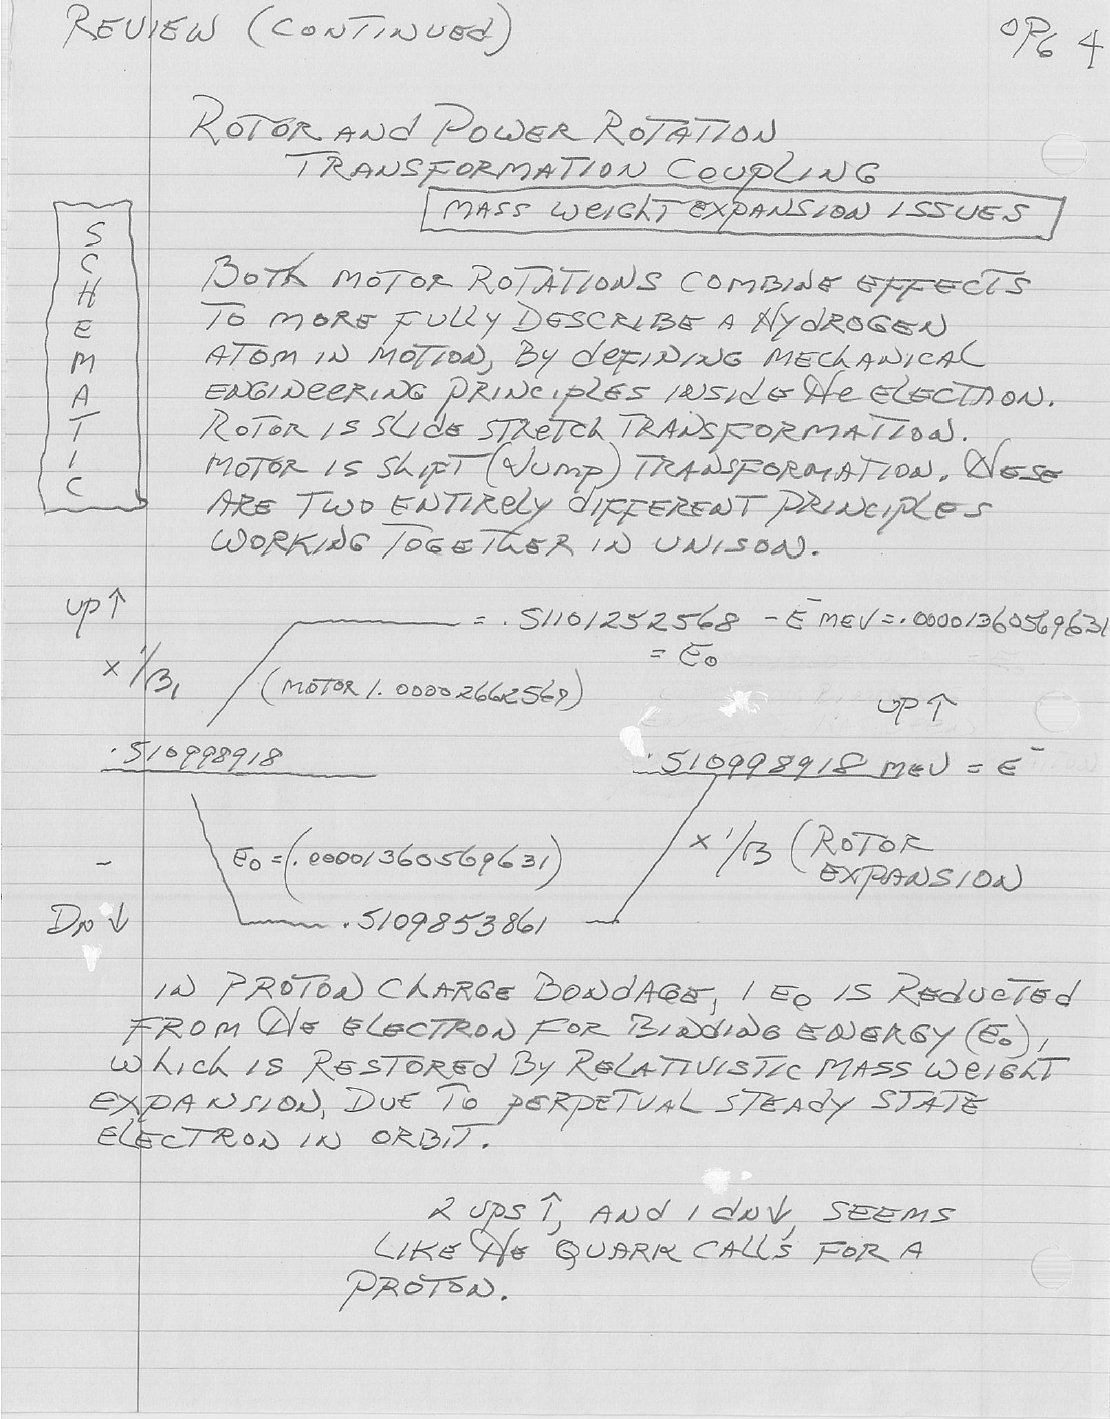 REVIEW (CONTINUED)
OPG 4
ROTOR AND POWER ROTATION
TRANSFORMATION COUPLING
MASS WEIGHT EXPANSION ISSUES
SCHEMATIC
BOTH MOTOR ROTATIONS COMBINE EFFECTS
TO MORE FULLY DESCRIBE A HYDROGEN
ATOM IN MOTION, BY DEFINING MECHANICAL
ENGINEERING PRINCIPLES INSIDE THE ELECTRON.
ROTOR IS SLIDE STRETCH TRANSFORMATION.
MOTOR IS SHIFT (JUMP) TRANSFORMATION. THESE
ARE TWO ENTIRELY DIFFERENT PRINCIPLES
WORKING TOGETHER IN UNISON.
UP ↑
= .51101252568 - E⁻ MEV = .00001360569631
= E₀
× 1/B₁
(MOTOR 1.0000266256)
UP ↑
.510998918
.510998918 MEV = E⁻
× 1/B (ROTOR
EXPANSION
E₀ = (.00001360569631)
-
DN ↓
.5109853861
IN PROTON CHARGE BONDAGE, 1 E₀ IS REDUCTED
FROM THE ELECTRON FOR BINDING ENERGY (E₀),
WHICH IS RESTORED BY RELATIVISTIC MASS WEIGHT
EXPANSION, DUE TO PERPETUAL STEADY STATE
ELECTRON IN ORBIT.
2 UPS ↑, AND 1 DN ↓, SEEMS
LIKE THE QUARK CALLS FOR A
PROTON.